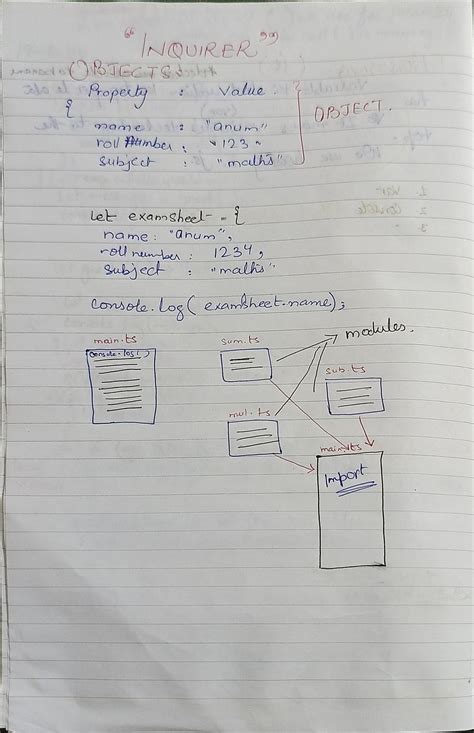 "INQUIRER"
OBJECTS
Property : Value
{
name : "anum"
roll number : "123"
subject : "maths"
OBJECT.
let examsheet = {
name : "anum",
roll number : 1234,
subject : "maths"
console.log( examsheet.name);
main.ts
console.log( )
sum.ts
modules.
sub.ts
mul.ts
main.ts
import